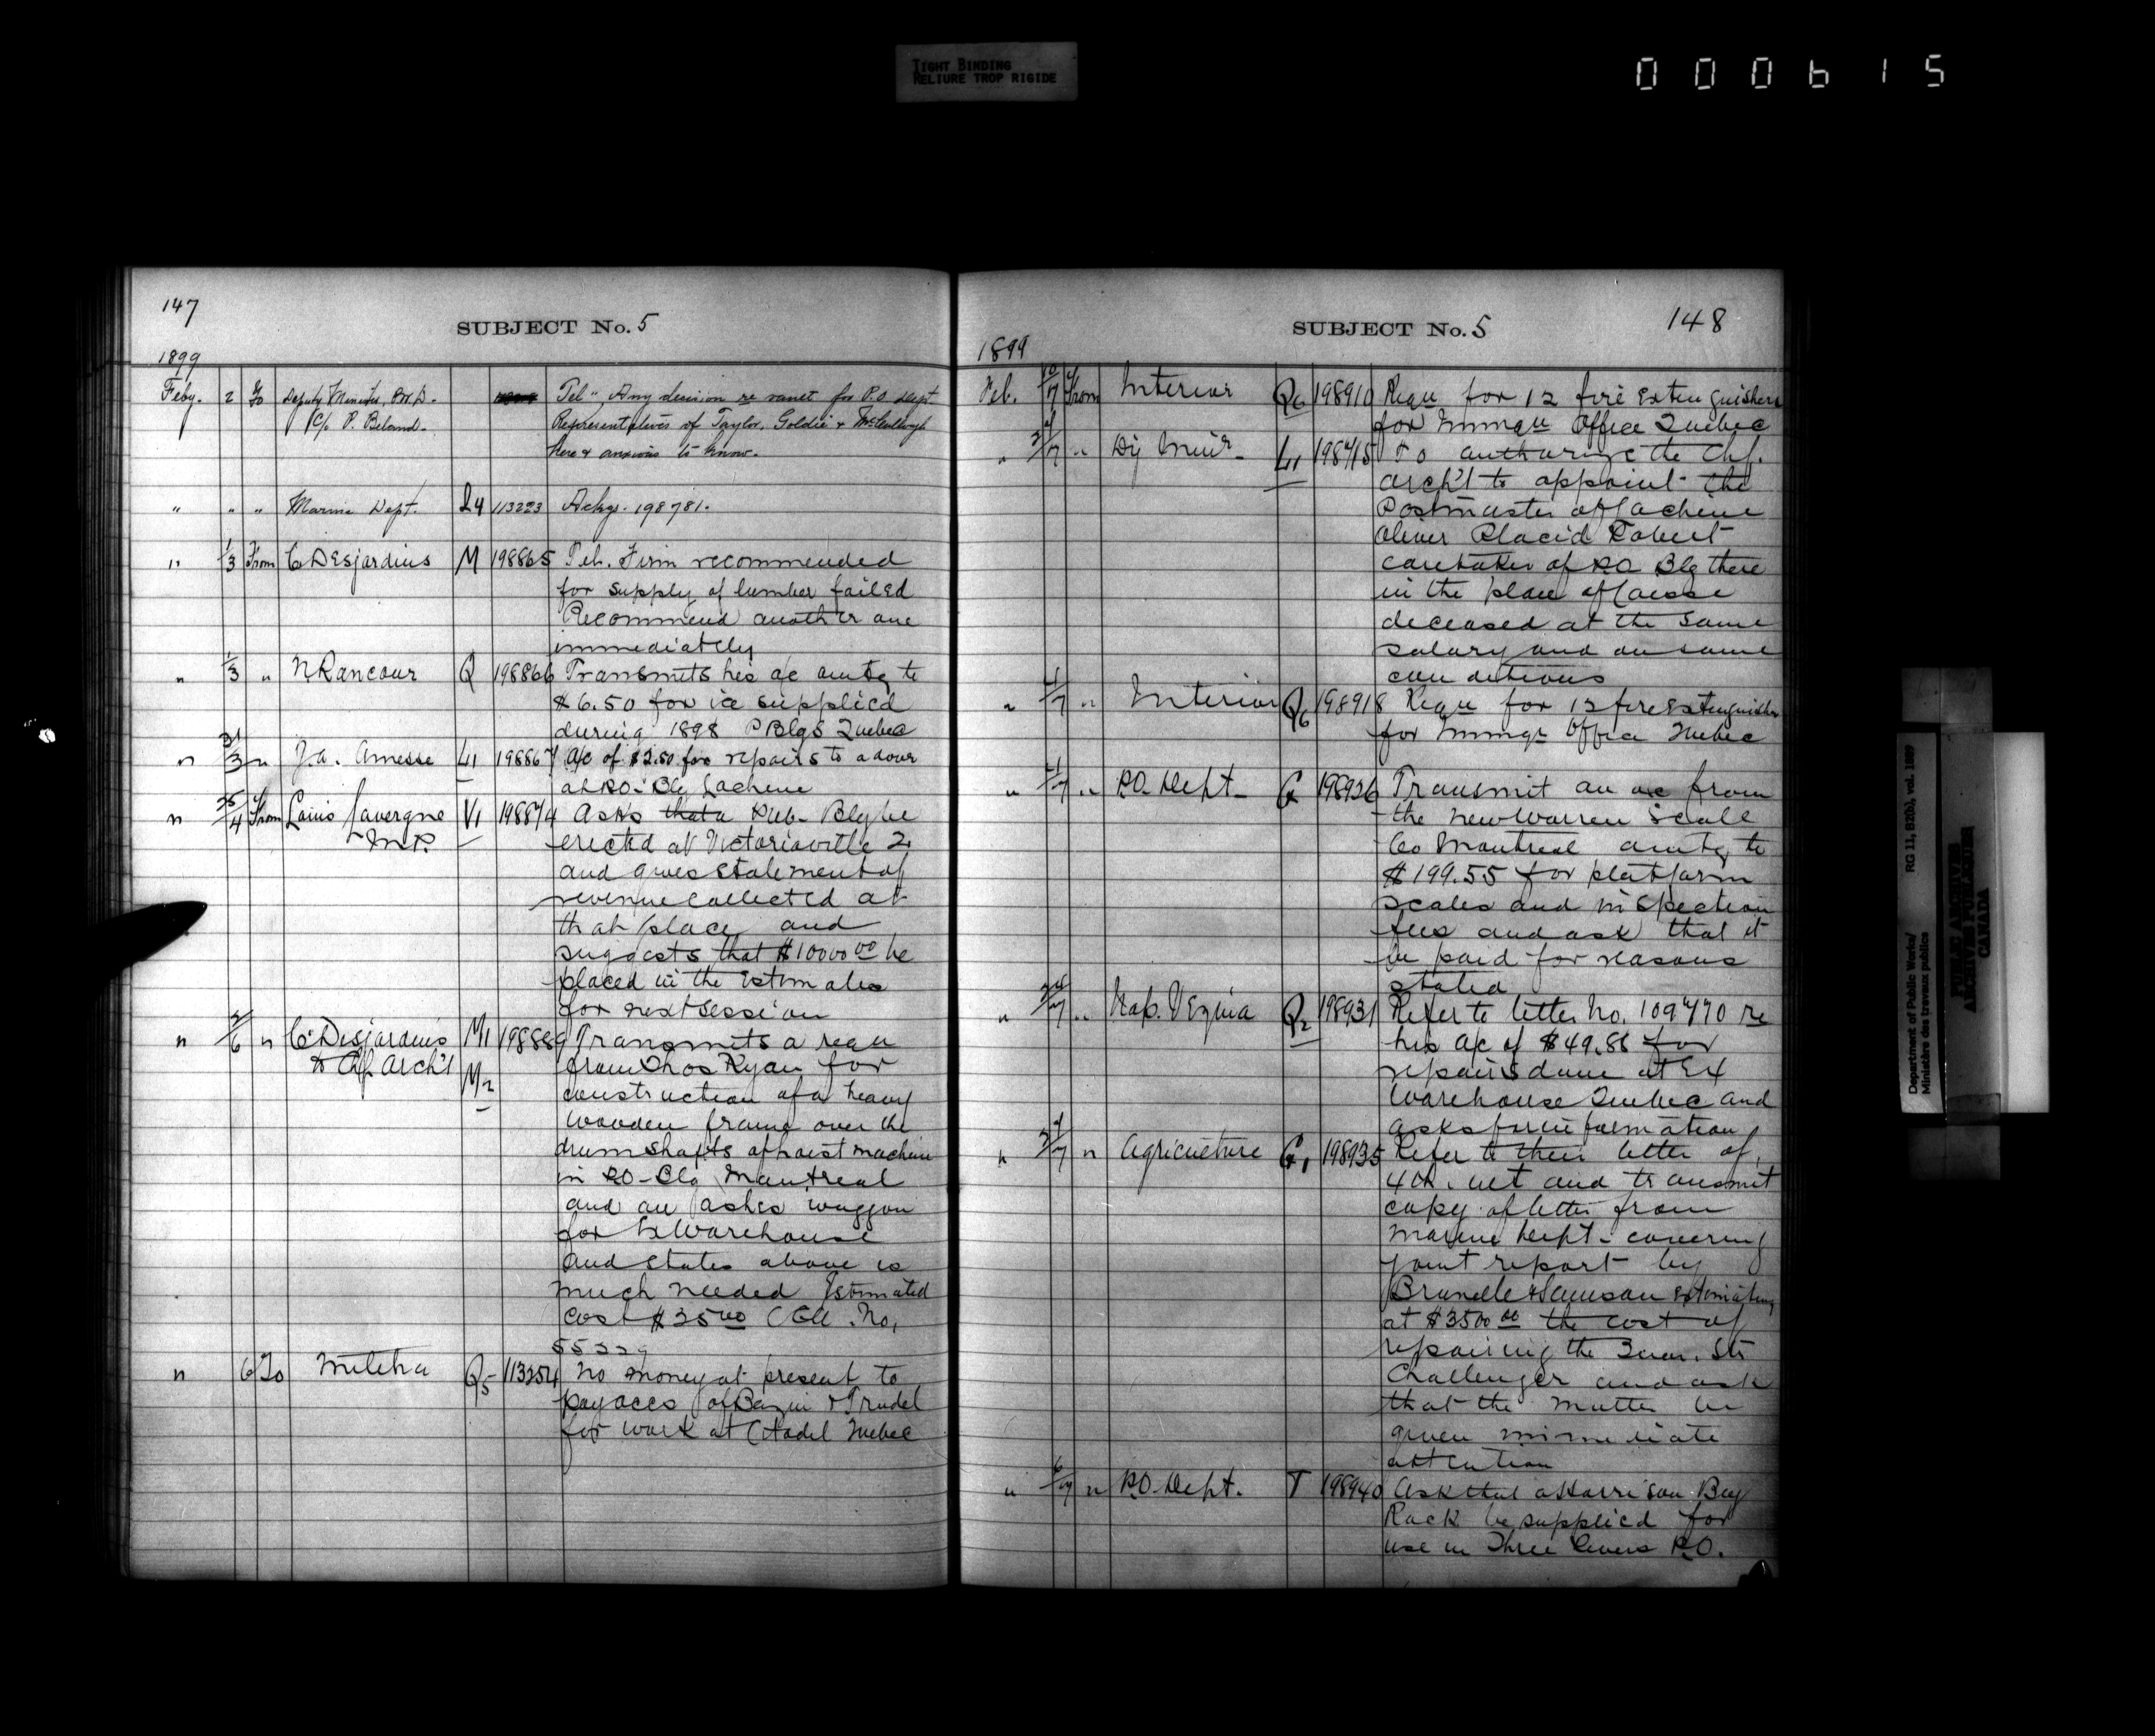 TIGHT BINDING
RELIURE TROP RIGIDE
000615
147
SUBJECT No. 5
1899
Feby. 2 To Deputy Minister, P.W.D. Tel "Any decision re vault for P.O. Dept
C/o P. Beland. Representatives of Taylor, Goldie & McCullough
here & anxious to know.
" " " Marine Dept. Q4 113223 Ackgs. 198781.
" 1/3 From C Desjardins M 198865 Tel. Firm recommended
for supply of lumber failed
Recommend another one
immediately
" 1/3 " N Rancour Q 198866 Transmits his a/c amtg to
$6.50 for ice supplied
during 1898 P Blgs Quebec
" 31/3 " J.A. Amesse L1 198867 A/c of $2.50 for repairs to a door
at P.O. Blg Lachine
" 25/4 From Louis Lavergne V1 198874 Asks that a Pub. Blg be
M.P. erected at Victoriaville Q.
and gives statement of
revenue collected at
that place and
suggests that $10000.00 be
placed in the Estimates
for next session
" 2/6 " C Desjardins M1 198889 Transmits a requ
to Chf Archt M2 from Thos Ryan for
construction of a heavy
wooden frame over the
drum shafts of hoist machine
in P.O. Blg Montreal
and an ashes waggon
for Ex Warehouse
and states above is
much needed Estimated
cost $35.00 (
5532
" 6 To Militia Q5 113254 No money at present to
pay accs of Bazin & Trudel
for work at Citadel Quebec
SUBJECT No. 5
148
1899
Feb. 10/7 From Interior Q6 198910 Requ for 12 fire Extinguishers
for Immgn Office Quebec
" " Dy Minr L1 198915 To authorize the Chf.
Archt to appoint the
Postmaster of Lachine
Oliver Placid Robert
caretaker of P.O. Blg there
in the place of
deceased at the same
salary and on same
conditions
" 4/7 " Interior Q6 198918 Requ for 12 fire Extinguishers
for Immgn Office Quebec
" 4/7 " P.O. Dept. G 198926 Transmit an a/c from
the New Warren Scale
Co Montreal amtg to
$199.55 for platform
scales and inspection
fees and ask that it
be paid for reasons
stated
" " Nap. Vezina Q2 198931 Refer to letter No. 109770 re
his a/c of $49.88 for
repairs done at Ex
Warehouse Quebec and
asks for information
" " Agriculture G1 198935 Refer to their letter of
4th. ult and transmit
copy of letter from
Marine Dept. covering
joint report by
Brunelle & Samson estimating
at $3500.00 the cost of
repairing the Quar. Str
Challenger and ask
that the matter be
given immediate
attention
" 6/7 " P.O. Dept. T 198940 Ask that a Harrison Bag
Rack be supplied for
use in Three Rivers P.O.
Department of Public Works/ RG 11, B2(b), vol. 1889
Ministère des travaux publics
PUBLIC ARCHIVES
ARCHIVES PUBLIQUES
CANADA